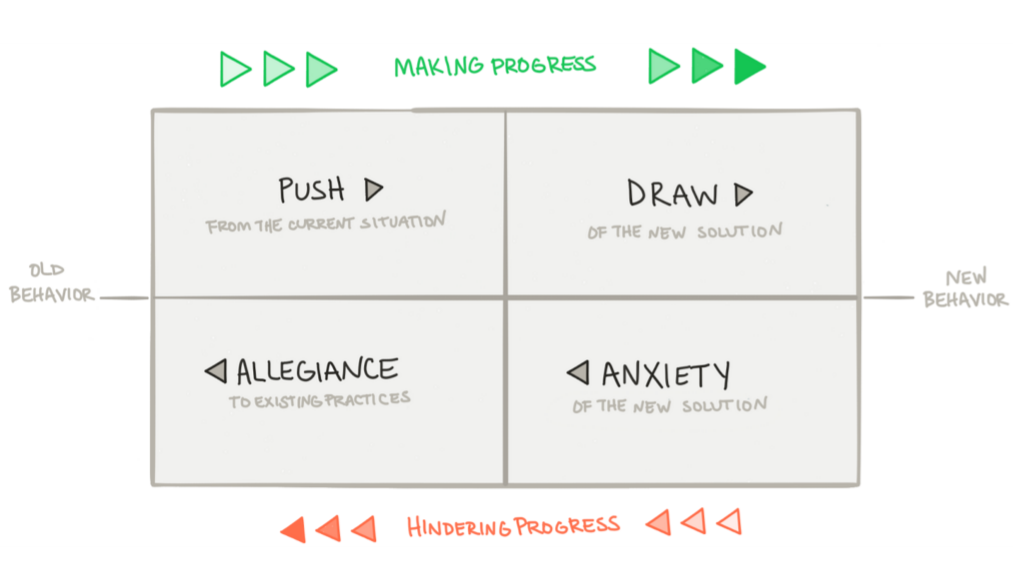 MAKING PROGRESS
PUSH
FROM THE CURRENT SITUATION
DRAW
OF THE NEW SOLUTION
OLD
BEHAVIOR
NEW
BEHAVIOR
ALLEGIANCE
TO EXISTING PRACTICES
ANXIETY
OF THE NEW SOLUTION
HINDERING PROGRESS